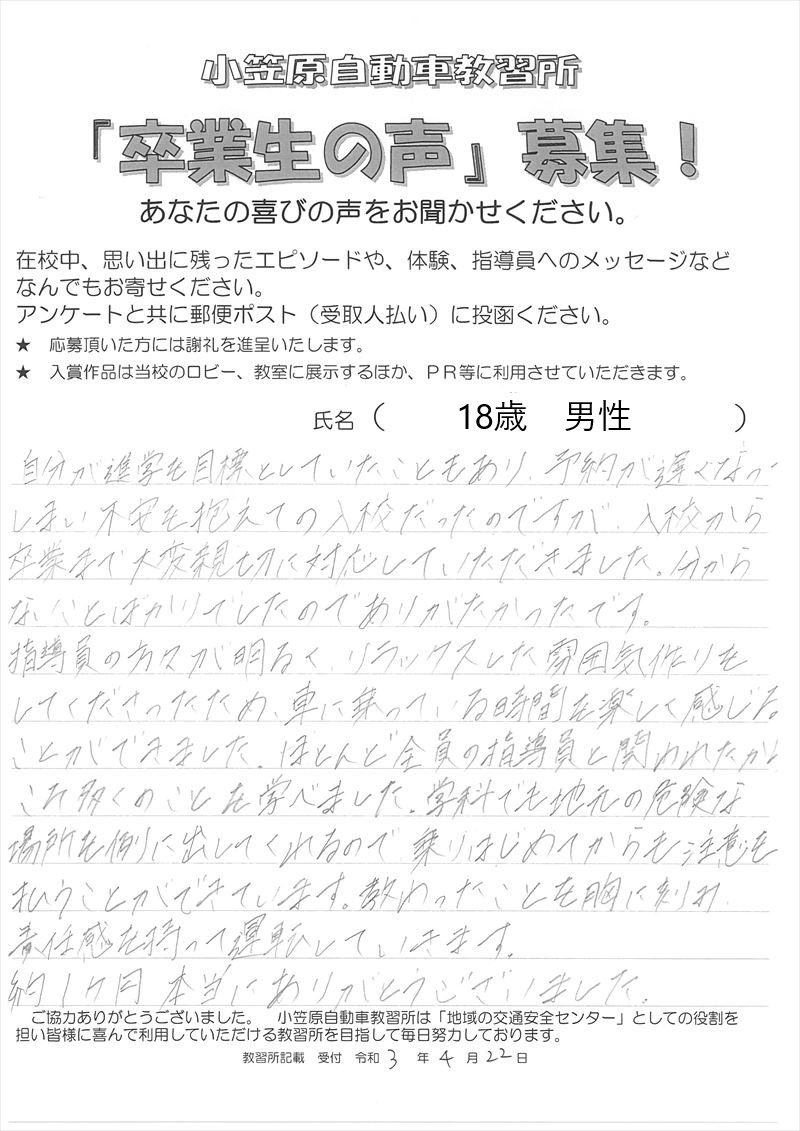 小笠原自動車教習所
『卒業生の声』募集！
あなたの喜びの声をお聞かせください。
在校中、思い出に残ったエピソードや、体験、指導員へのメッセージなど
なんでもお寄せください。
アンケートと共に郵便ポスト（受取人払い）に投函ください。
★　応募頂いた方には謝礼を進呈いたします。
★　入賞作品は当校のロビー、教室に展示するほか、ＰＲ等に利用させていただきます。
氏名（　18歳　男性　）
自分が進学を目標としていたこともあり、予約が遅くなっ
しまい不安を抱えての入校だったのですが、入校から
卒業まで大変親切に対応していただきました。分から
ないことばかりでしたのでありがたかったです。
指導員の方々が明るく、リラックスした雰囲気作りを
してくださったため、車に乗っている時間を楽しく感じる
ことができました。ほとんど全員の指導員と関われたから
こそ多くのことを学べました。学科でも地元の危険な
場所を例に出してくれるので、乗りはじめてからも注意を
払うことができています。教わったことを胸に刻み、
責任感を持って運転していきます。
約1ヶ月本当にありがとうございました。
ご協力ありがとうございました。　小笠原自動車教習所は「地域の交通安全センター」としての役割を
担い皆様に喜んで利用していただける教習所を目指して毎日努力しております。
教習所記載　受付　令和 3 年 4 月 22 日